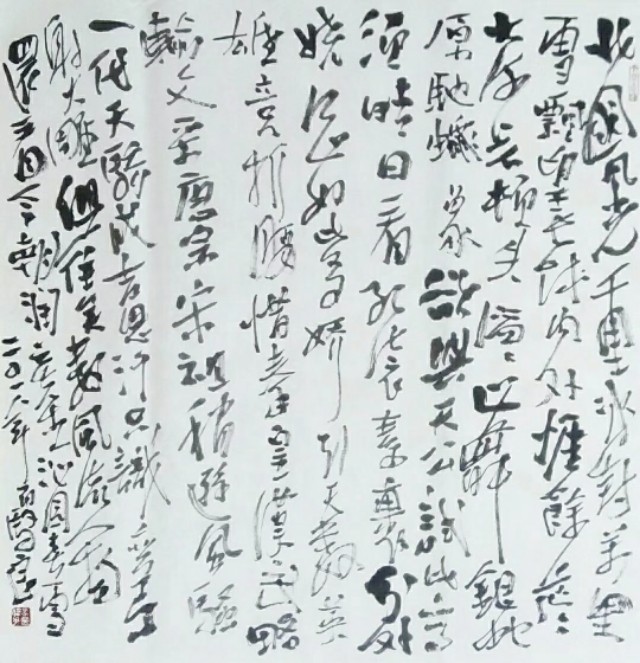 北國風光千里冰封萬里
雪飄望長城内外惟餘莽〻
大河上下頓失滔〻山舞銀蛇
原馳蠟象欲與天公試比高
須晴日看紅裝素裹分外
嬈江山如此多嬌引無數英
雄競折腰惜秦皇漢武略
輸文采唐宗宋祖稍遜風騷
一代天驕成吉思汗只識彎弓
射大雕俱往矣數風流人物
還看今朝潤之 沁園春雪
二〇一六年